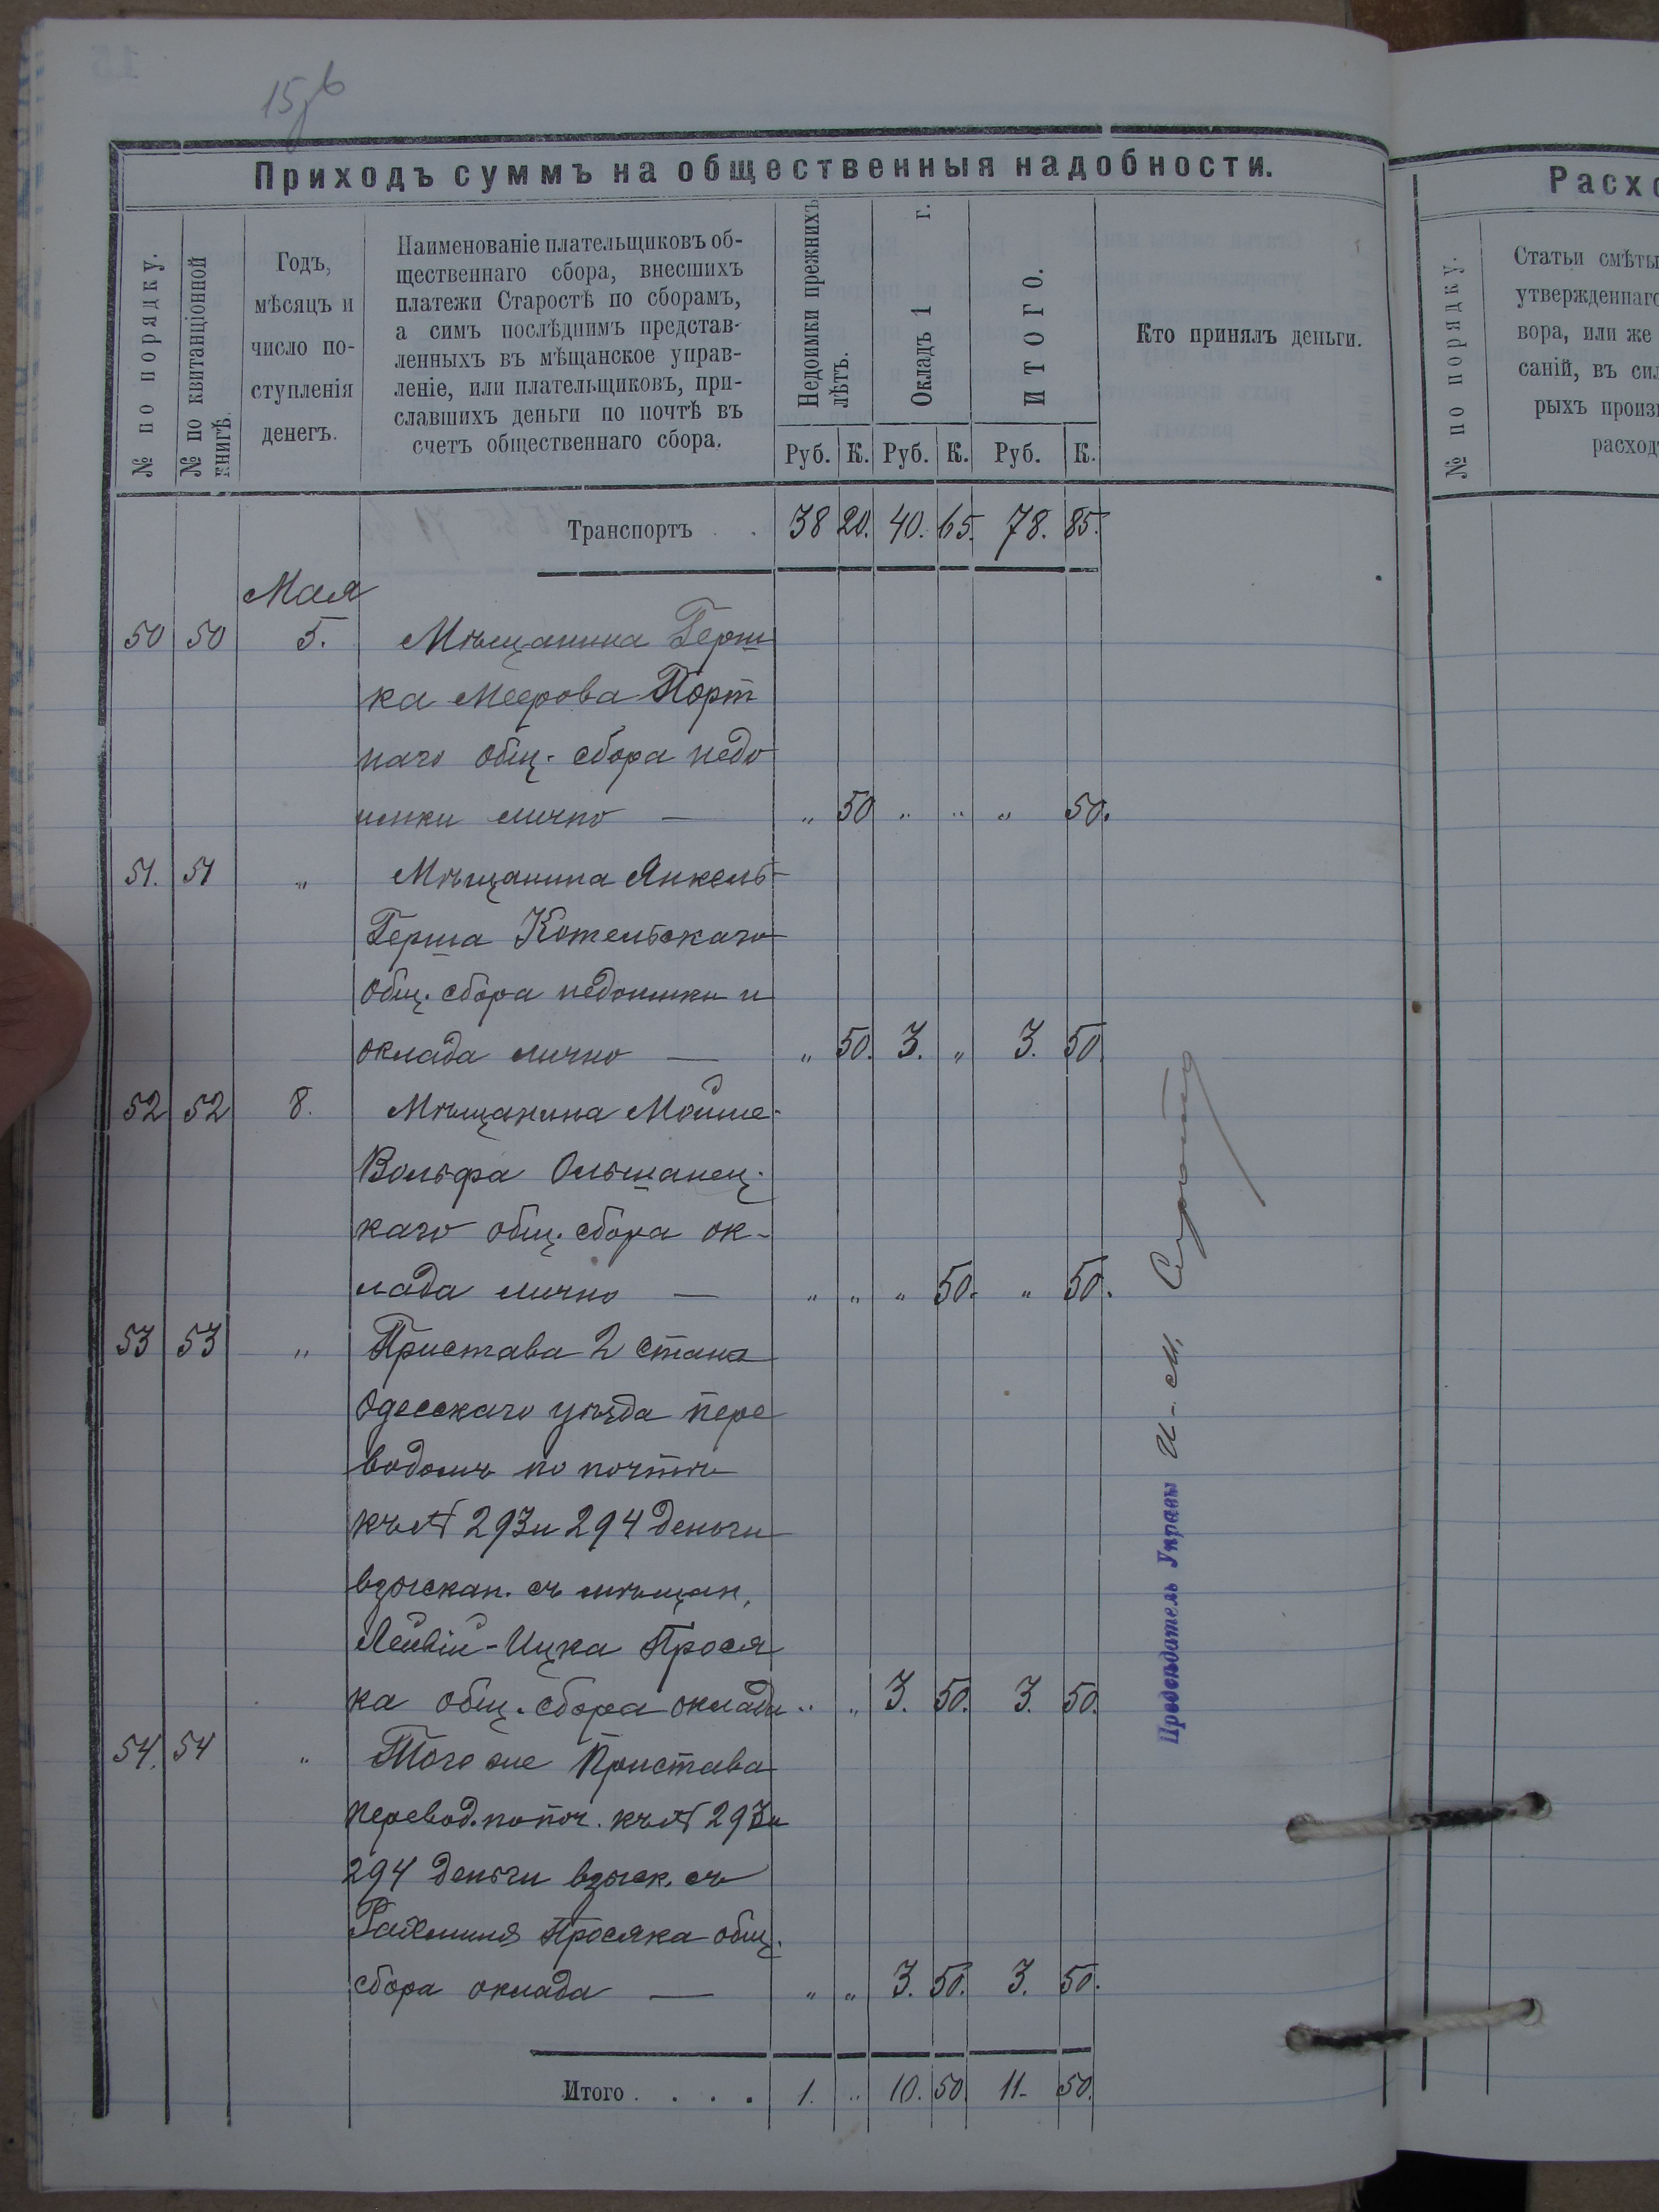 15
15 об
Приходъ суммъ на общественныя надобности.
№ по порядку.
№ по квитанціонной книгѣ.
Годъ,
мѣсяцъ и
число по-
ступленія
денегъ.
Наименованіе плательщиковъ об-
щественнаго сбора, внесшихъ
платежи Старостѣ по сборамъ,
а симъ послѣднимъ представ-
ленныхъ въ мѣщанское управ-
леніе, или плательщиковъ, при-
славшихъ деньги по почтѣ въ
счетъ общественнаго сбора.
Недоимки прежнихъ лѣтъ.
Окладъ 1 г.
ИТОГО.
Руб. К. Руб. К. Руб. К.
Кто принялъ деньги.
Транспортъ . . 38 20. 40. 65. 78. 85.
Мая
50 50 5. Мѣщанина Герш
ка Меерова Порт
наго общ. сбора недо
имки лично — „ 50 „ „ „ 50.
51. 51 „ Мѣщанина Янкель-
Герша Котельскаго
общ. сбора недоимки и
оклада лично — „ 50. 3. „ 3. 50
52 52 8. Мѣщанина Мойше-
Вольфа Ольшанец-
каго общ. сбора ок-
лада лично — „ „ „ 50. „ 50.
53 53 „ Пристава 2 стана
Одесскаго уѣзда пере
водомъ по почтѣ
къ № 293 и 294 деньги
взыскан. съ мѣщан.
Лейвій-Ицка Прося
ка общ. сбора оклада „ „ 3. 50. 3. 50.
54. 54 „ Того же Пристава
перевод. по поч. къ № 293 и
294 деньги взыск. съ
Рахмиля Просяка общ.
сбора оклада — „ „ 3. 50. 3. 50.
Итого . . . . 1. „ 10. 50. 11- 50.
Предсѣдатель Управы И. М.
Расхо
№ по порядку.
Статьи смѣты
утвержденнаго
вора, или же
саній, въ сил
рыхъ произв
расход